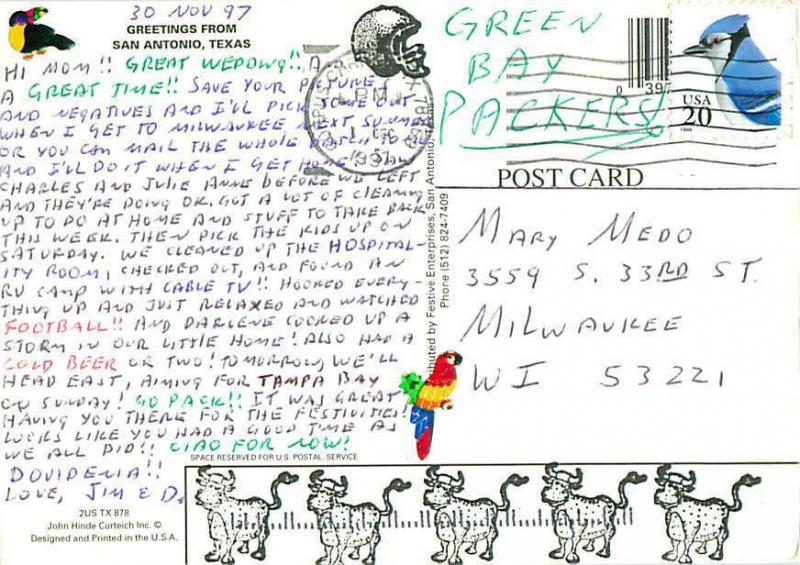 30 NOV 97
GREETINGS FROM
SAN ANTONIO, TEXAS
HI MOM!! GREAT WEDDING!! AND
A GREAT TIME!! SAVE YOUR PICTURES
AND NEGATIVES AND I'LL PICK SOME OUT
WHEN I GET TO MILWAUKEE NEXT SUMMER
OR YOU CAN MAIL THE WHOLE BATCH TO ME
AND I'LL DO IT WHEN I GET HOME! SAW
CHARLES AND JULIE ANNE BEFORE WE LEFT
AND THEY'RE DOING OK. GOT A LOT OF CLEANING
UP TO DO AT HOME AND STUFF TO TAKE BACK
THIS WEEK. THEN PICK THE KIDS UP ON
SATURDAY. WE CLEANED UP THE HOSPITAL-
ITY ROOM, CHECKED OUT, AND FOUND AN
RV CAMP WITH CABLE TV!! HOOKED EVERY-
THING UP AND JUST RELAXED AND WATCHED
FOOTBALL!! AND DARLENE COOKED UP A
STORM IN OUR LITTLE HOME! ALSO HAD A
COLD BEER OR TWO! TOMORROW, WE'LL
HEAD EAST, AIMING FOR TAMPA BAY
ON SUNDAY! GO PACK!! IT WAS GREAT
HAVING YOU THERE FOR THE FESTIVITIES!
LOOKS LIKE YOU HAD A GOOD TIME AS
WE ALL DID!! CIAO FOR NOW!
DOVIDENIA!!
LOVE, JIM & D.
SPACE RESERVED FOR U.S. POSTAL SERVICE
2US TX 878
John Hinde Curteich Inc. ©
Designed and Printed in the U.S.A.
Festive Enterprises, San Antonio, Texas
Phone (512) 824-7409
CORPUS CHRISTI TX
PM
1 DEC
1997
GREEN
BAY
PACKERS!
0 397
USA
20
1996
POST CARD
MARY MEDO
3559 S. 33RD ST.
MILWAUKEE
WI 53221